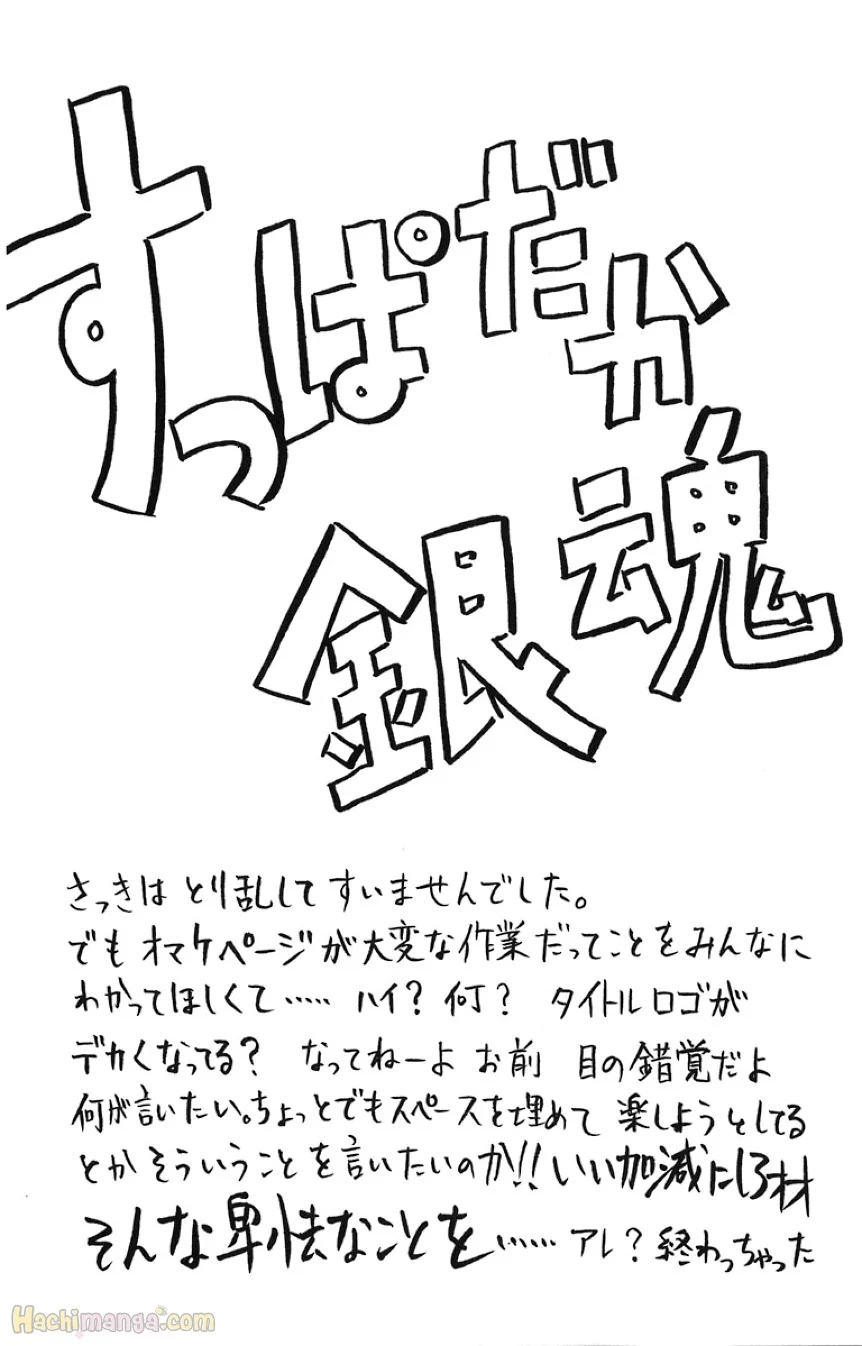 すっぱだか
銀魂
さっきは とり乱して すいませんでした。
でも オマケページが大変な作業だってことをみんなに
わかってほしくて…… ハイ? 何? タイトルロゴが
デカくなってる? なってねーよ お前 目の錯覚だよ
何が言いたい。ちょっとでもスペースを埋めて 楽しようとしてる
とか そういうことを言いたいのか!! いい加減にしろオオ
そんな卑怯なことを…… アレ? 終わっちゃった
Hachimanga.com